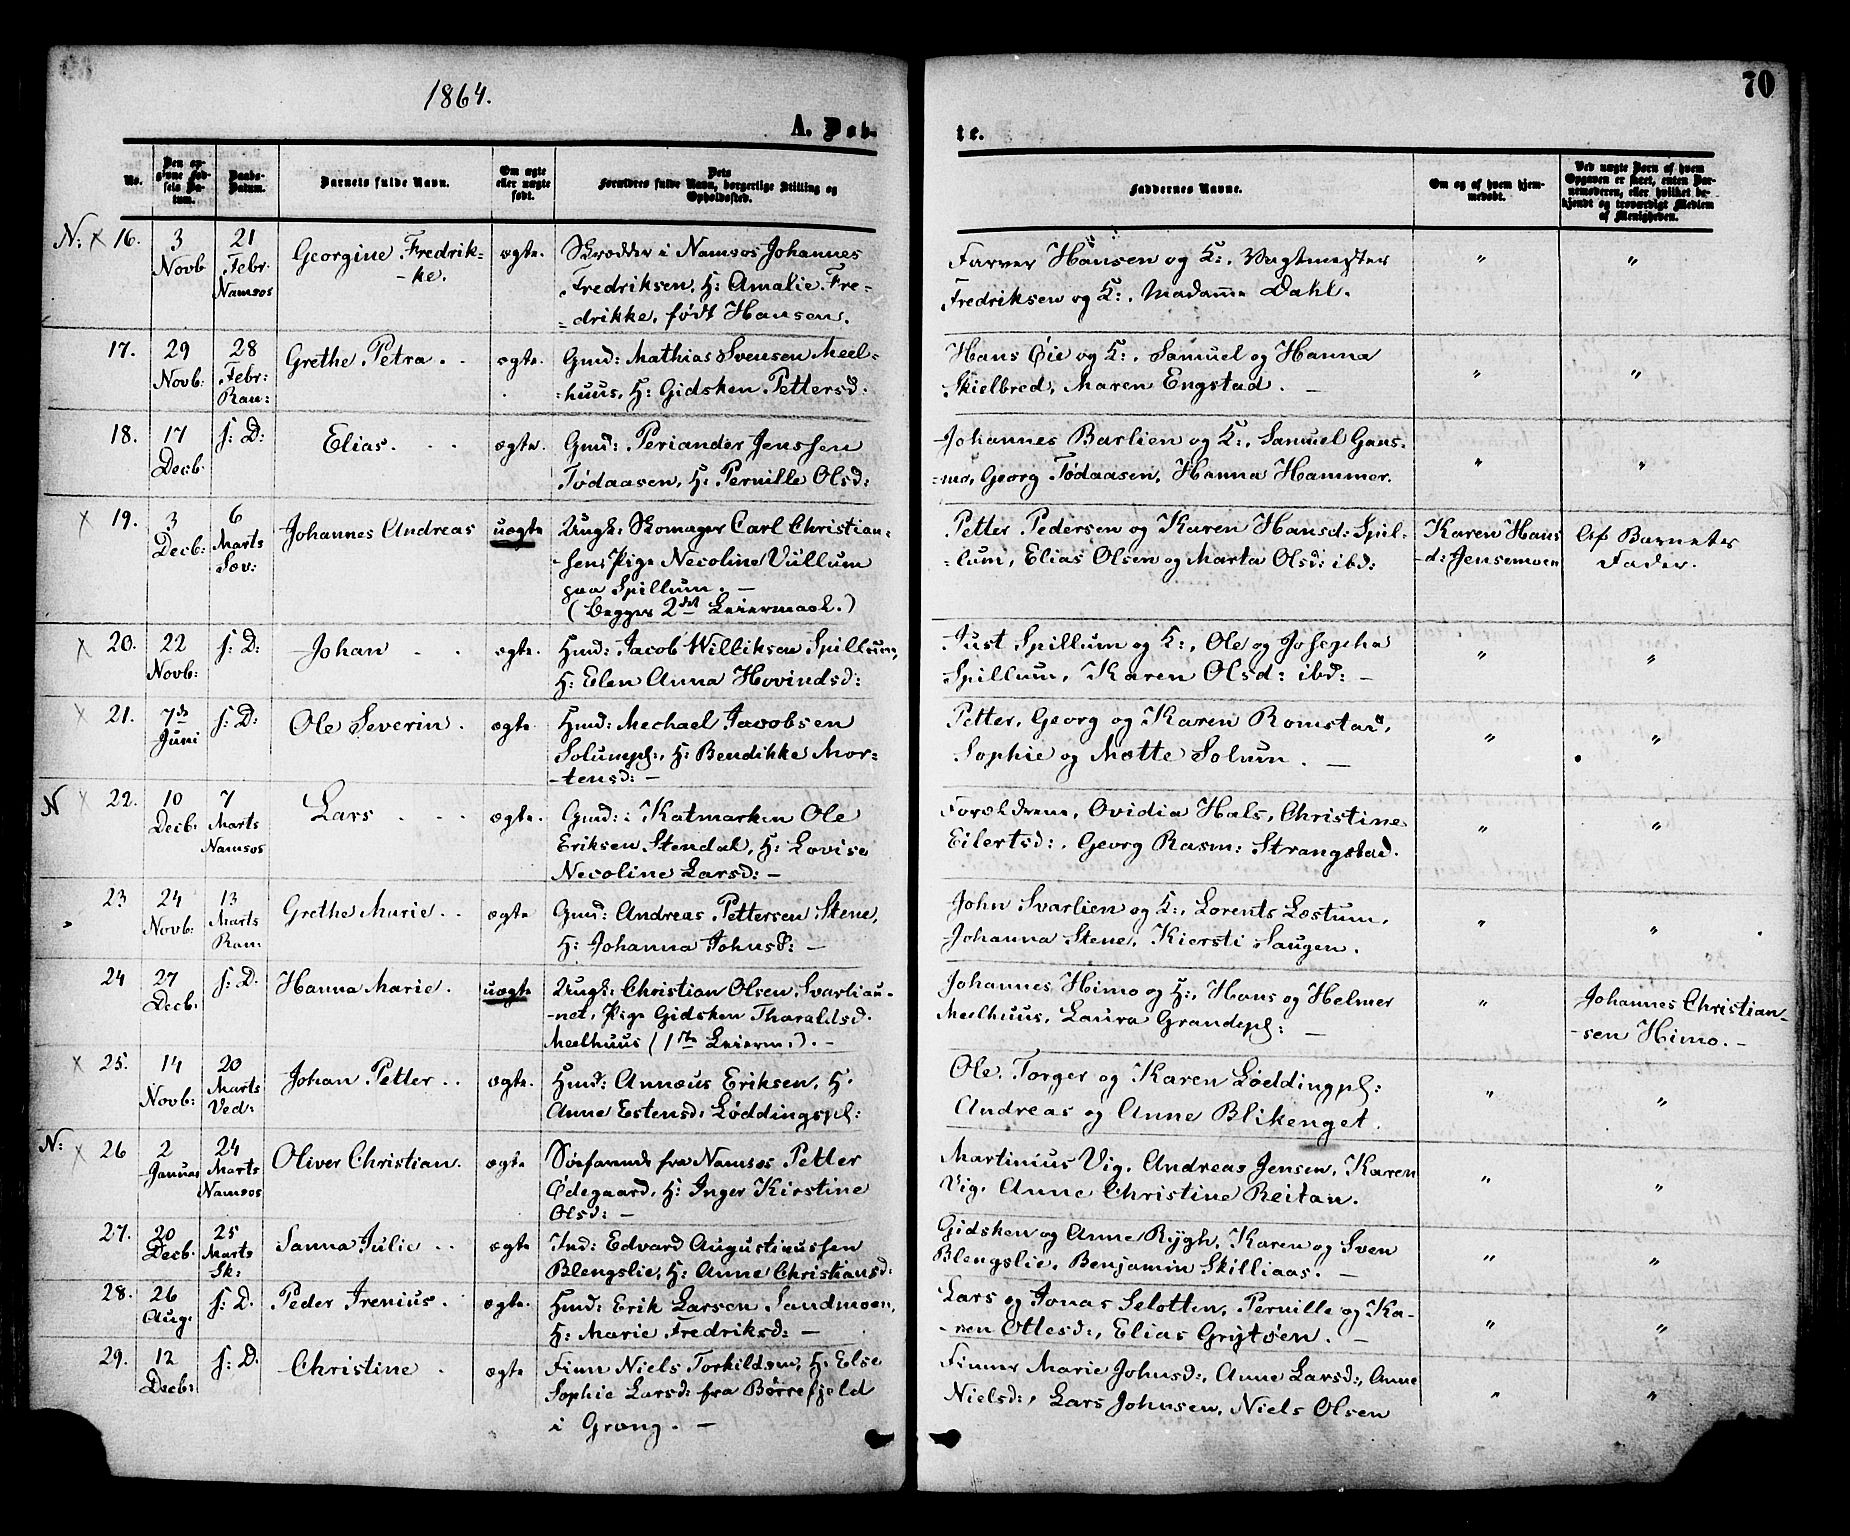 1864.
70
A. Døb-
te.
No.
Den op-
givne Fød-
sels Da-
tum.
Daabs-
Datum.
Barnets fulde Navn.
Om ægte
eller uægte
født.
Dets
Forældres fulde Navn, borgerlige Stilling og
Opholdssted.
Faddernes Navne.
Om og af hvem hjem-
medøbt.
Ved uægte Børn af hvem
Opgaven er skeet, enten Bar-
nemoderen, eller hvilket be-
kjendt og troværdigt Medlem
af Menigheden.
N: × 16.
3
Novb
21
Febr.
Namsos
Georgine Fredrik-
-ke.
ægte.
Skrædder i Namsos Johannes
Fredriksen, H: Amalie Fre-
-drikke, født Hansen.
Farver Hansen og K:, Vagtmester
Fredriksen og K:, Madame Dahl.
"
"
17.
29
Novb:
28
Febr:
Ran:
Grethe Petra . .
ægte.
Gmd: Mathias Svensen Meel-
-huus, H: Gidsken Pettersd:
Hans Øie og K:, Samuel og Hanna
Skielbred, Maren Engstad. —
"
"
18.
17
Decb.
f: D:
Elias. . .
ægte.
Gmd: Periander Jenssen
Tødaasen, H: Pernille Olsd:
Johannes Barlien og K:, Samuel Gans-
-mo, Georg Tødaasen, Hanna Hammer.
"
"
× 19.
3
Decb:
6
Marts
Sæv:
Johannes Andreas
uægte
Ungk: Skomager Carl Christian-
-sen, Pige Necoline Vullum
paa Spillum. —
(Begges 2det Leiermaal.)
Petter Pedersen og Karen Hansd: Spil-
-lum, Elias Olsen og Marta Olsd: ibd:
Karen Hans
-d: Jensemoen
Af Barnets
Fader.
× 20.
22
Novb:
f: D:
Johan . .
ægte.
Hmd: Jacob Williksen Spillum,
H: Elen Anna Hovindsd:
Just Spillum og K:, Ole og Josepha
Spillum, Karen Olsd: ibd: —
"
"
× 21.
7de
Juni
f: D:
Ole Severin. .
ægte.
Hmd: Mechael Jacobsen
Solumpl:, H: Bendikke Mor-
-tensd: —
Petter, Georg og Karen Romstad,
Sophie og Mætte Solum. —
"
"
N × 22.
10
Decb:
7
Marts
Namsos
Lars . . .
ægte.
Gmd: i Katmarken Ole
Eriksen Stendal, H: Lovise
Necoline Larsd: —
Forældrene, Ovidia Hals, Christine
Eilertsd:, Georg Rasm: Strangstad.
"
"
23
24
Novb:
13
Marts
Ran:
Grethe Marie. .
ægte
Gmd: Andreas Pettersen Stene,
H: Johanna Johnsd: —
John Svarlien og K:, Lorents Læstum,
Johanna Stene, Kiersti Saugen.
"
"
24
27
Decb:
f: D.
Hanna Marie.
uægte
Ungk: Christian Olsen Svarliau-
-net, Pige Gidsken Tharaldsd.
Meelhuus (1ste Leierm:). —
Johannes Himo og H:, Hans og Helmer
Meelhuus, Laura Grandepl: —
"
Johannes Christian-
-sen Himo. —
× 25.
14
Novb:
20
Marts
Ved:
Johan Petter . .
ægte.
Hmd: Annæus Eriksen, H.
Anne Estensd: Løddingspl:
Ole, Torger og Karen Løddingpl:
Andreas og Anne Blikenget.
"
"
N: × 26
2
Januar
24
Marts
Namsos
Oliver Christian.
ægte
Søefarende fra Namsos Petter
Ødegaard, H: Inger Kirstine
Olsd: —
Martinius Vig, Andreas Jensen, Karen
Vig, Anne Christine Reitan.
"
"
27.
20
Decb.
25
Marts
Sk:
Sanna Julie . .
ægte
Ind: Edvard Augustinussen
Blengslie, H: Anne Christiansd:
Gidsken og Anne Rygh, Karen og Sven
Blengslie, Benjamin Skilliaas. —
"
"
28.
26
Aug:
f: D.
Peder Irenius.
ægte.
Hmd: Erik Larsen Sandmoen,
H: Marie Fredriksd: —
Lars og Jonas Seløtten, Pernille og Ka-
-ren Ottesd:, Elias Grytøen. —
"
"
29.
12
Decb:
f: D.
Christine .
ægte
Finn Niels Torkildsen, H: Else
Sophie Larsd: fra Børrefjeld
i Grong. —
Finner Marie Johnsd:, Anne Larsd:, Anne
Nielsd:, Lars Johnsen, Niels Olsen
"
"